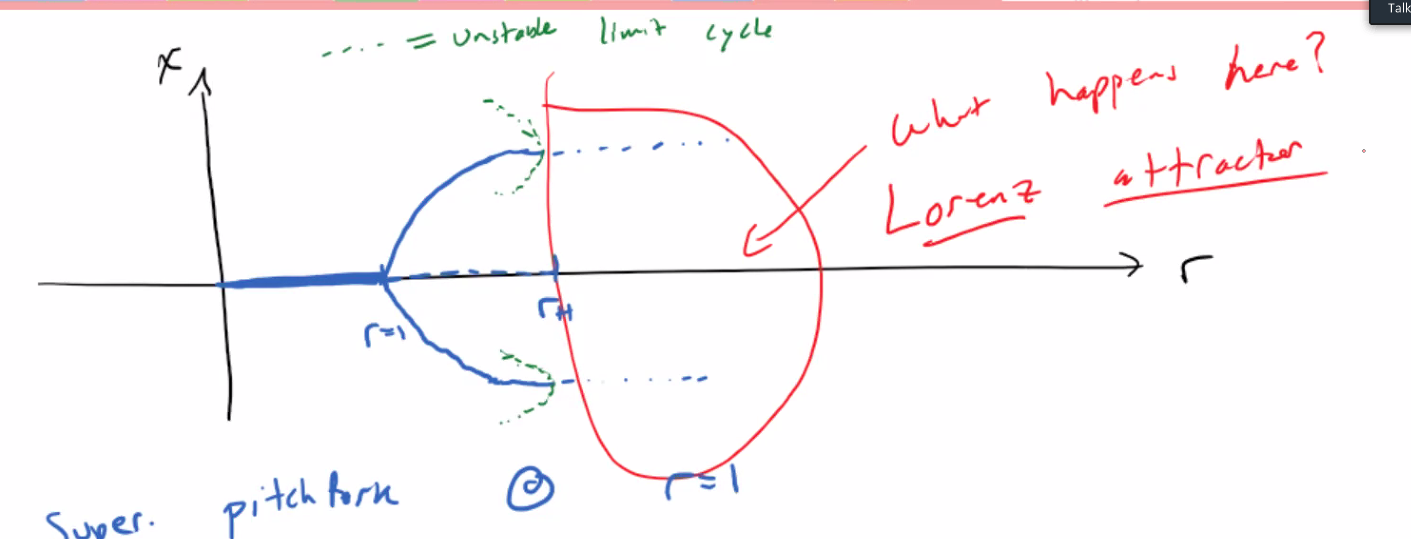 Talk
---- = unstable limit cycle
x
what happens here?
Lorenz attractor
r
r=1
rH
Super. pitchfork @ r=1